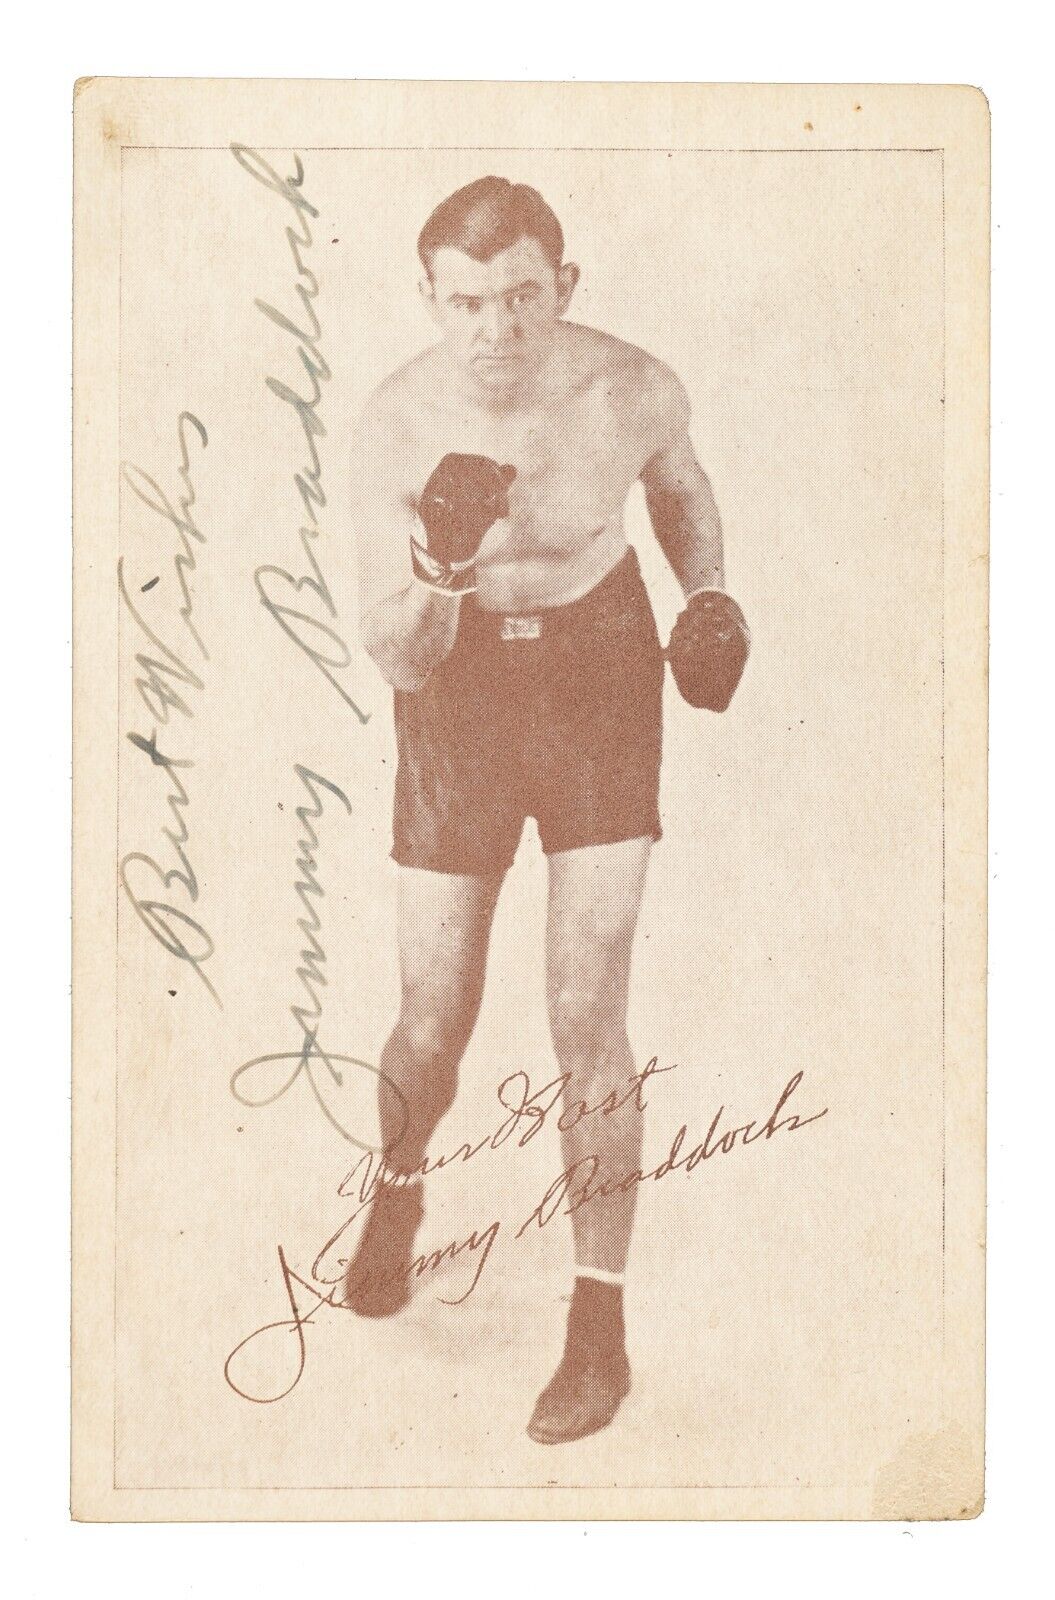 Best Wishes
Jimmy Braddock
Your Host
Jimmy Braddock